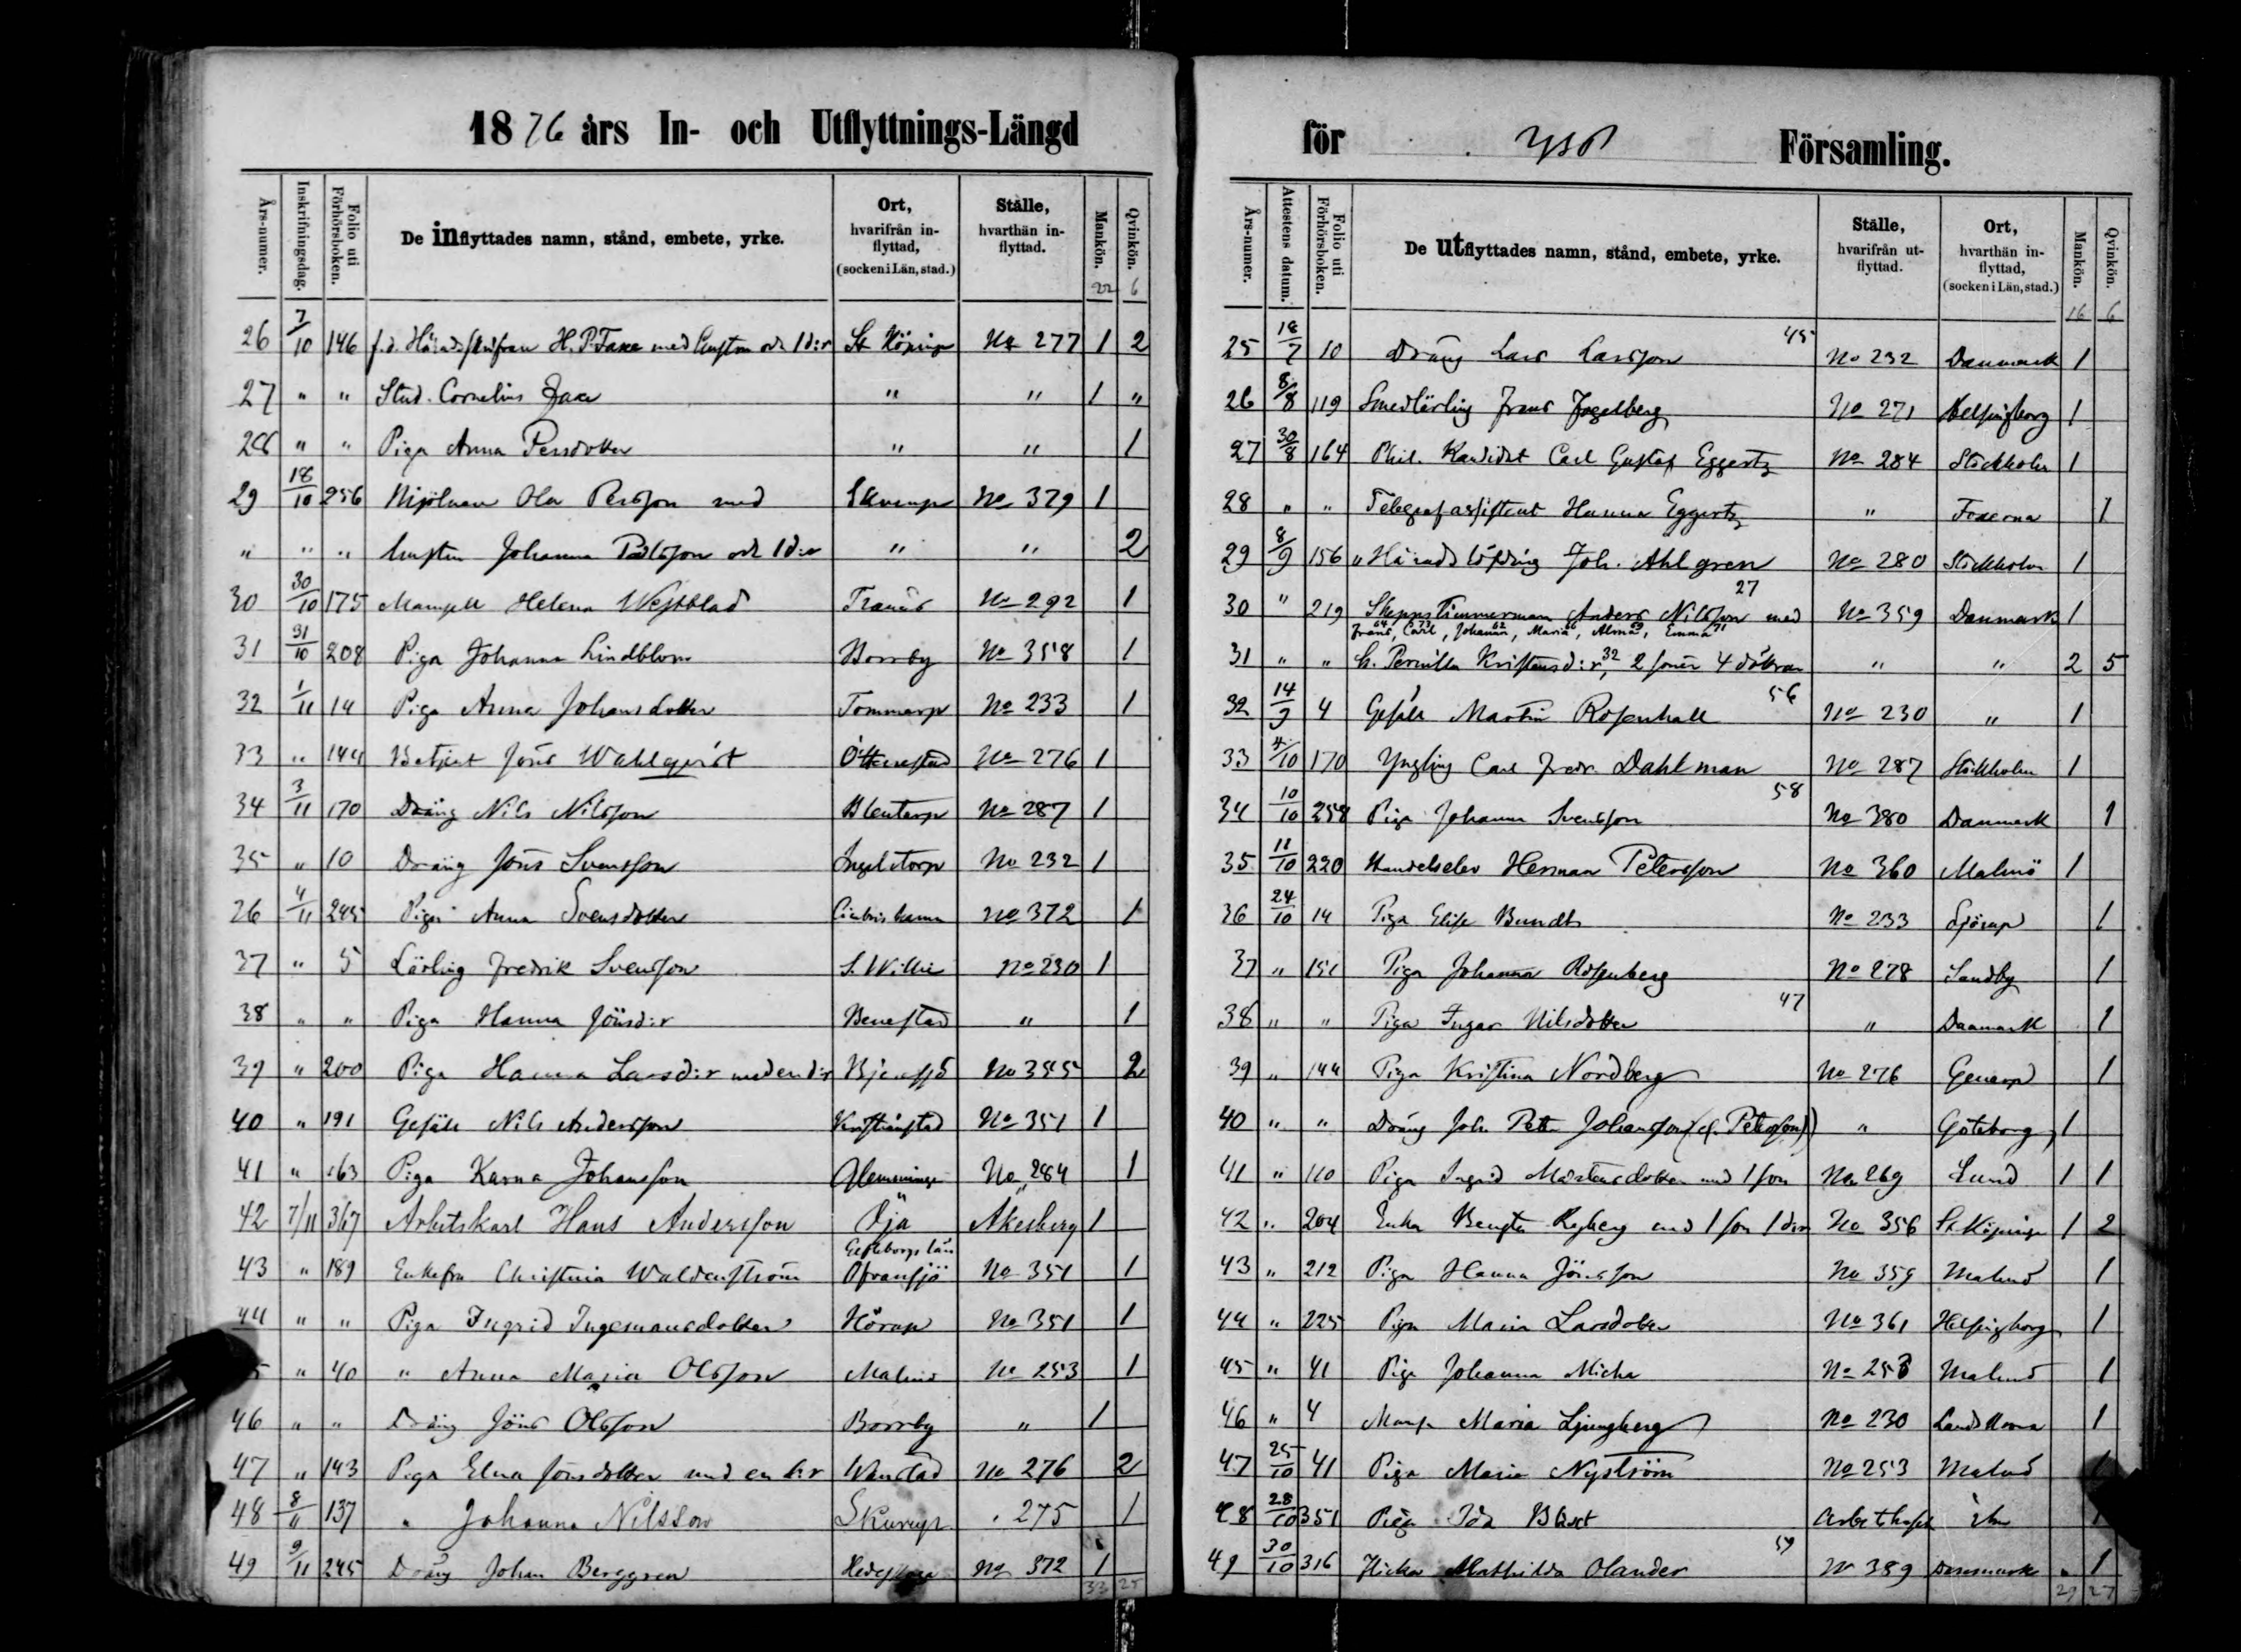 1876 års In- och Utflyttnings-Längd
Års-numer. Inskrifningsdag. Folio uti Förhörsboken. De inflyttades namn, stånd, embete, yrke. Ort, hvarifrån inflyttad, (socken i Län, stad.) Ställe, hvarthän inflyttad. Mankön. Qvinkön.
22 6
26 7/10 146 f.d. Häradsskrifvan H. P. Faxe med hustru och 1 d:r St Köpinge No 277 1 2
27 " " Stud. Cornelius Faxe " " 1 "
28 " " Piga Anna Persdotter " " 1
29 18/10 256 Mjölnare Ola Persson med Skurup No 379 1
" " " hustru Johanna Pålsson och 1 d:r " " 2
30 30/10 175 Mamsell Helena Westblad Tranås No 292 1
31 31/10 208 Piga Johanna Lindblom Borrby No 358 1
32 1/11 14 Piga Anna Johansdotter Tommarp No 233 1
33 " 144 Betjent Jöns Wahlqvist No 276 1
34 3/11 170 Dräng Nils Nilsson Blentarp No 287 1
35 " 10 Dräng Jöns Svensson Ingelstorp No 232 1
36 4/11 245 Piga Anna Svensdotter Cimbrishamn No 372 1
37 " 5 Lärling Fredrik Svensson S. Willie No 230 1
38 " " Piga Hanna Jönsd:r Benestad " 1
39 " 200 Piga Hanna Larsd:r med en d:r Bjeresjö No 355 2
40 " 191 Gesäll Nils Andersson Kristianstad No 351 1
41 " 163 Piga Karna Johansson Glemminge No 284 1
42 7/11 367 Arbetskarl Hans Andersson Öja Åkesberg 1
43 " 189 Enkefru Christina Waldenström Gefleborgs län Ofvansjö No 351 1
44 " " Piga Ingrid Ingemansdotter Hörup No 351 1
45 " 40 " Anna Maria Olsson Malmö No 253 1
46 " " Dräng Jöns Olsson Borrby " 1
47 " 143 Piga Elna Jönsdotter med en d:r Wanstad No 276 2
48 8/11 137 " Johanna Nilsson Skurup " 275 1
49 9/11 245 Dräng Johan Berggren No 372 1
33 25
för Församling.
Års-numer. Attestens datum. Folio uti Förhörsboken. De utflyttades namn, stånd, embete, yrke. Ställe, hvarifrån utflyttad. Ort, hvarthän inflyttad, (socken i Län, stad.) Mankön. Qvinkön.
16 6
25 18/7 10 Dräng Lars Larsson 45 No 232 Danmark 1
26 8/8 119 Smedlärling Frans Fogelberg No 271 Helsingborg 1
27 30/8 164 Phil. Kandidat Carl Gustaf Eggertz No 284 Stockholm 1
28 " " Telegrafassistent Hanna Eggertz " Foxerna 1
29 8/9 156 " Häradshöfding Joh. Ahlgren No 280 Stockholm 1
30 " 219 Skeppstimmerman Anders Nilsson 27 med No 359 Danmark 1
Frans 64, Carl 73, Johanna 62, Maria 66, Alma 69, Emma 71
31 " " h. Pernilla Kristensd:r 32, 2 söner 4 döttrar " " 2 5
32 14/9 4 Gesäll Martin Rosenhall 56 No 230 " 1
33 4/10 170 Yngling Carl Fredr. Dahlman No 287 Stockholm 1
34 10/10 258 Piga Johanna Svensson 58 No 380 Danmark 1
35 11/10 220 Handelselev Herman Petersson No 360 Malmö 1
36 24/10 14 Piga Elise Bundt No 233 Sjörup 1
37 " 151 Piga Johanna Rosenberg No 278 Sandby 1
38 " " Piga Ingar Nilsdotter 47 " Danmark 1
39 " 144 Piga Kristina Nordberg No 276 Genarp 1
40 " " Dräng Joh. Petter Johansson (el. Petersson) " Göteborg 1
41 " 110 Piga Ingrid Mårtensdotter med 1 son No 269 Lund 1 1
42 " 204 Enka Bengta Ryberg med 1 son 1 dotter No 356 St. Köpinge 1 2
43 " 212 Piga Hanna Jönsson No 359 Malmö 1
44 " 225 Piga Maria Larsdotter No 361 Helsingborg 1
45 " 41 Piga Johanna Micha No 253 Malmö 1
46 " 4 Mams. Maria Ljungberg No 230 Landskrona 1
47 25/10 41 Piga Maria Nyström No 253 Malmö 1
48 28/10 351 Piga Ida
49 30/10 316 Flickan Mathilda Olander 59 No 389 Danmark " 1
29 27